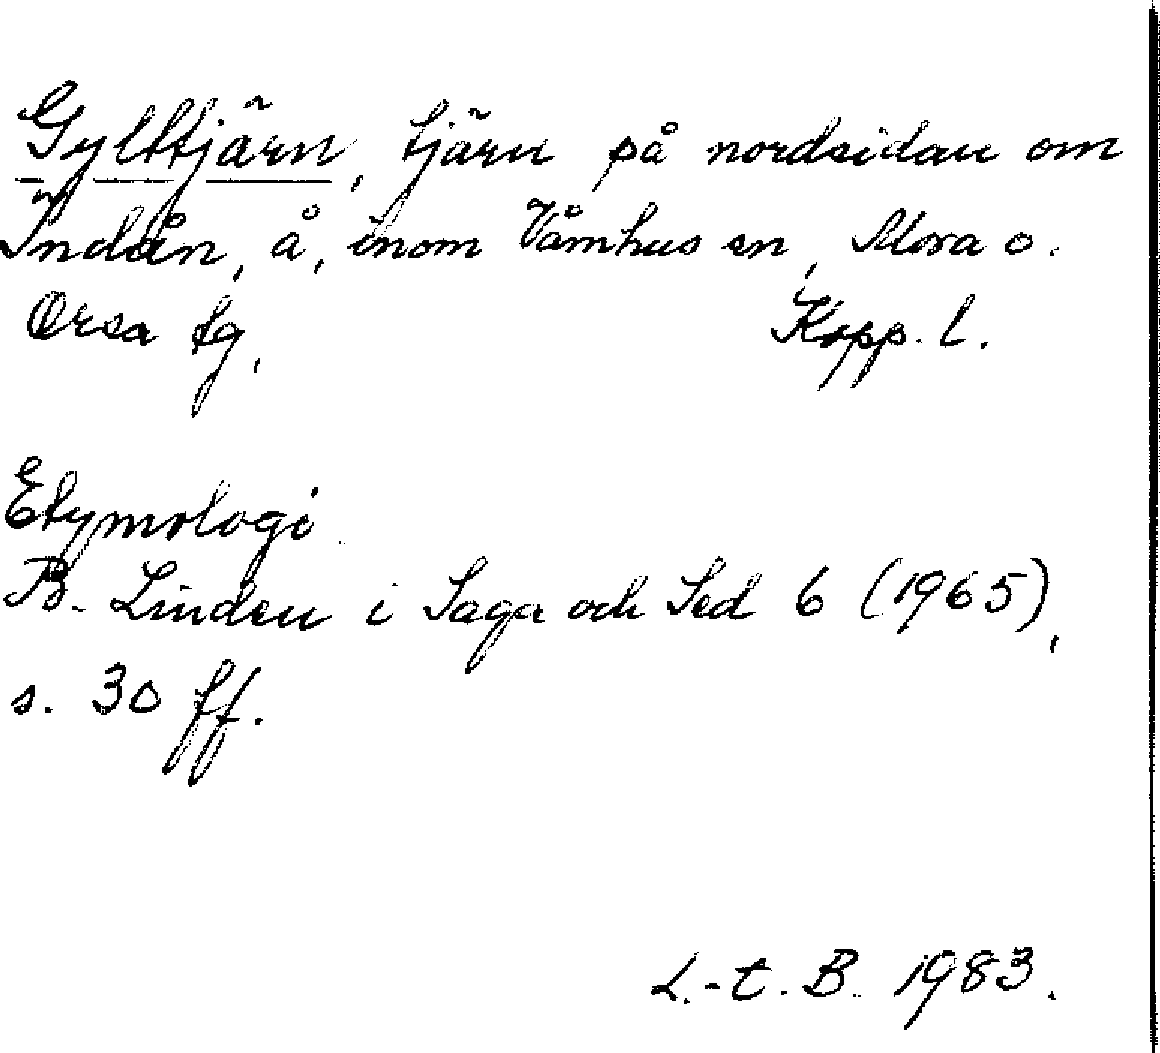 Gylttjärn, tjärn på nordsidan om
Indån, å, inom Våmhus sn, Mora o.
Orsa tg, Kopp. l.
Etymologi
B. Linden i Saga och Sed 6 (1965),
s. 30 ff.
L.-t. B. 1983.